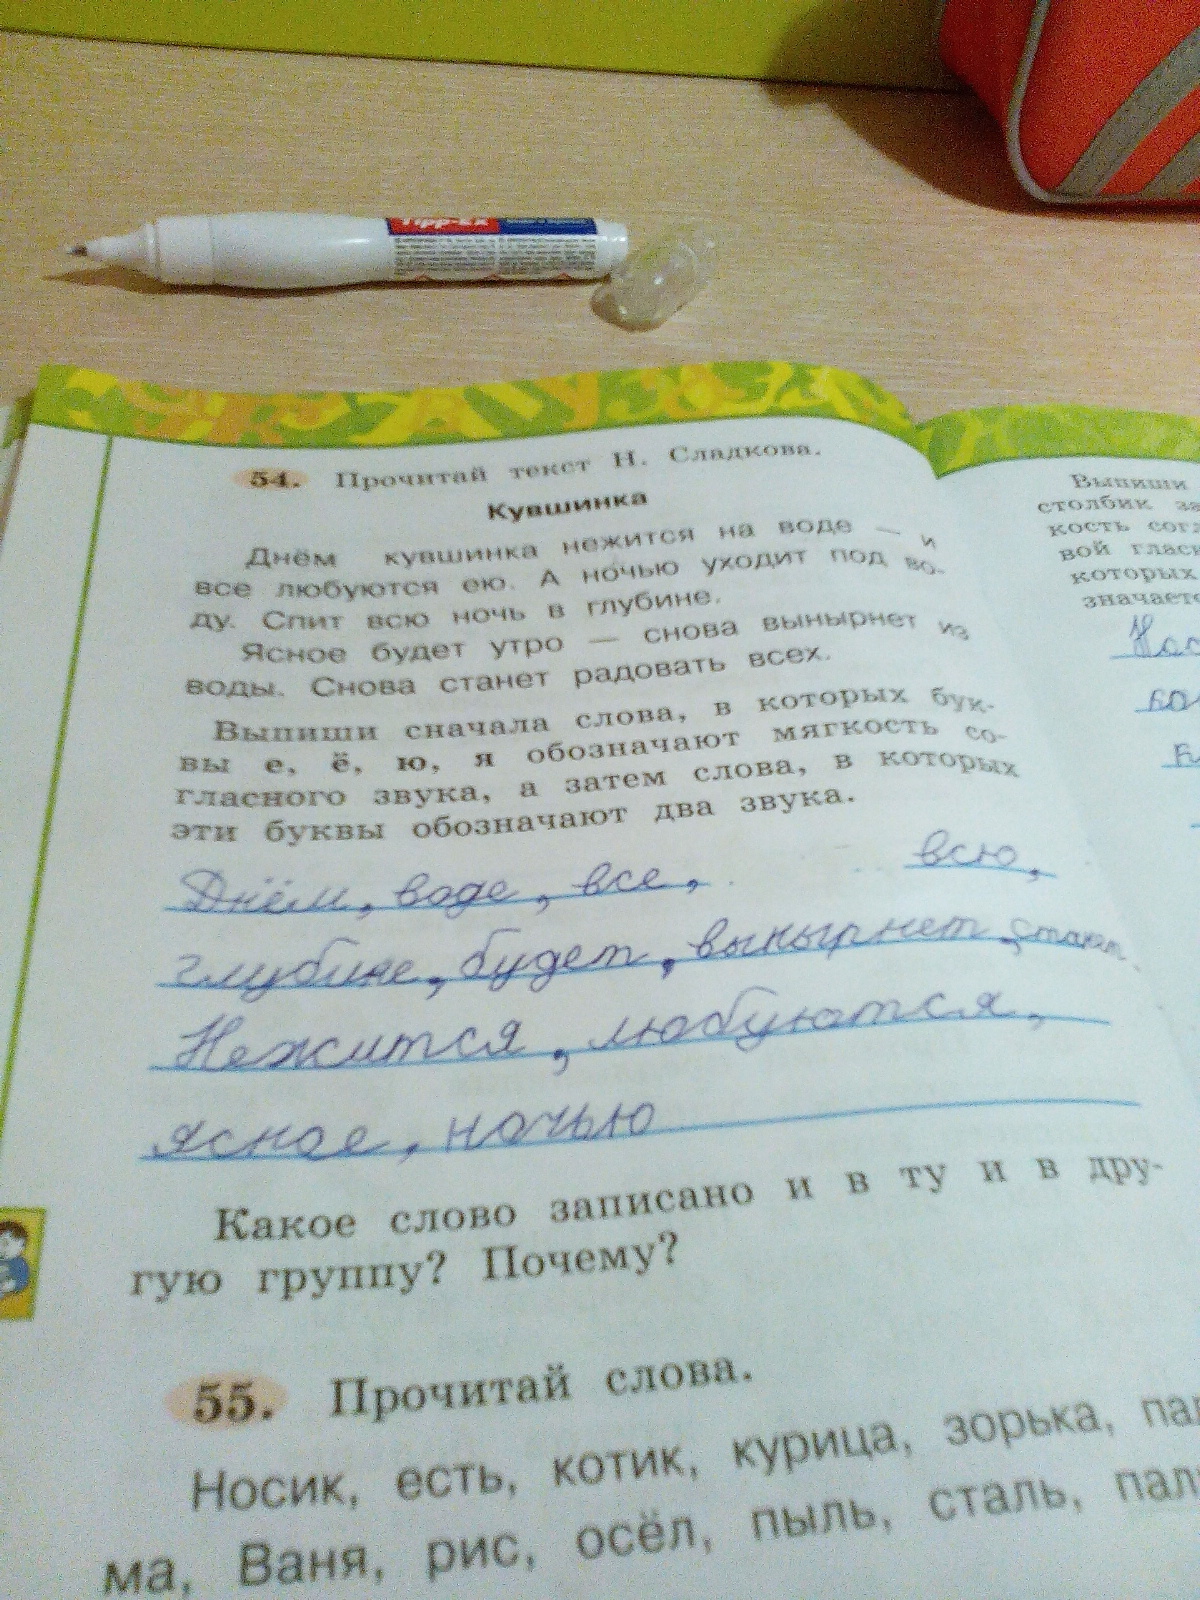 Tipp-Ex
54. Прочитай текст Н. Сладкова.
Кувшинка
Днём кувшинка нежится на воде — и
все любуются ею. А но́чью уходит под во-
ду. Спит всю ночь в глубине.
Ясное будет утро — снова вынырнет из
воды. Снова станет радовать всех.
Выпиши сначала слова, в которых бук-
вы е, ё, ю, я обозначают мягкость со-
гласного звука, а затем слова, в которых
эти буквы обозначают два звука.
Днём, воде, все, всю,
глубине, будет, вынырнет, станет
Нежится, любуются,
ясное, ночью
Какое слово записано и в ту и в дру-
гую группу? Почему?
55. Прочитай слова.
Носик, есть, котик, курица, зорька,
ма, Ваня, рис, осёл, пыль, сталь,
Выпиши
столбик
кость
вой
которых